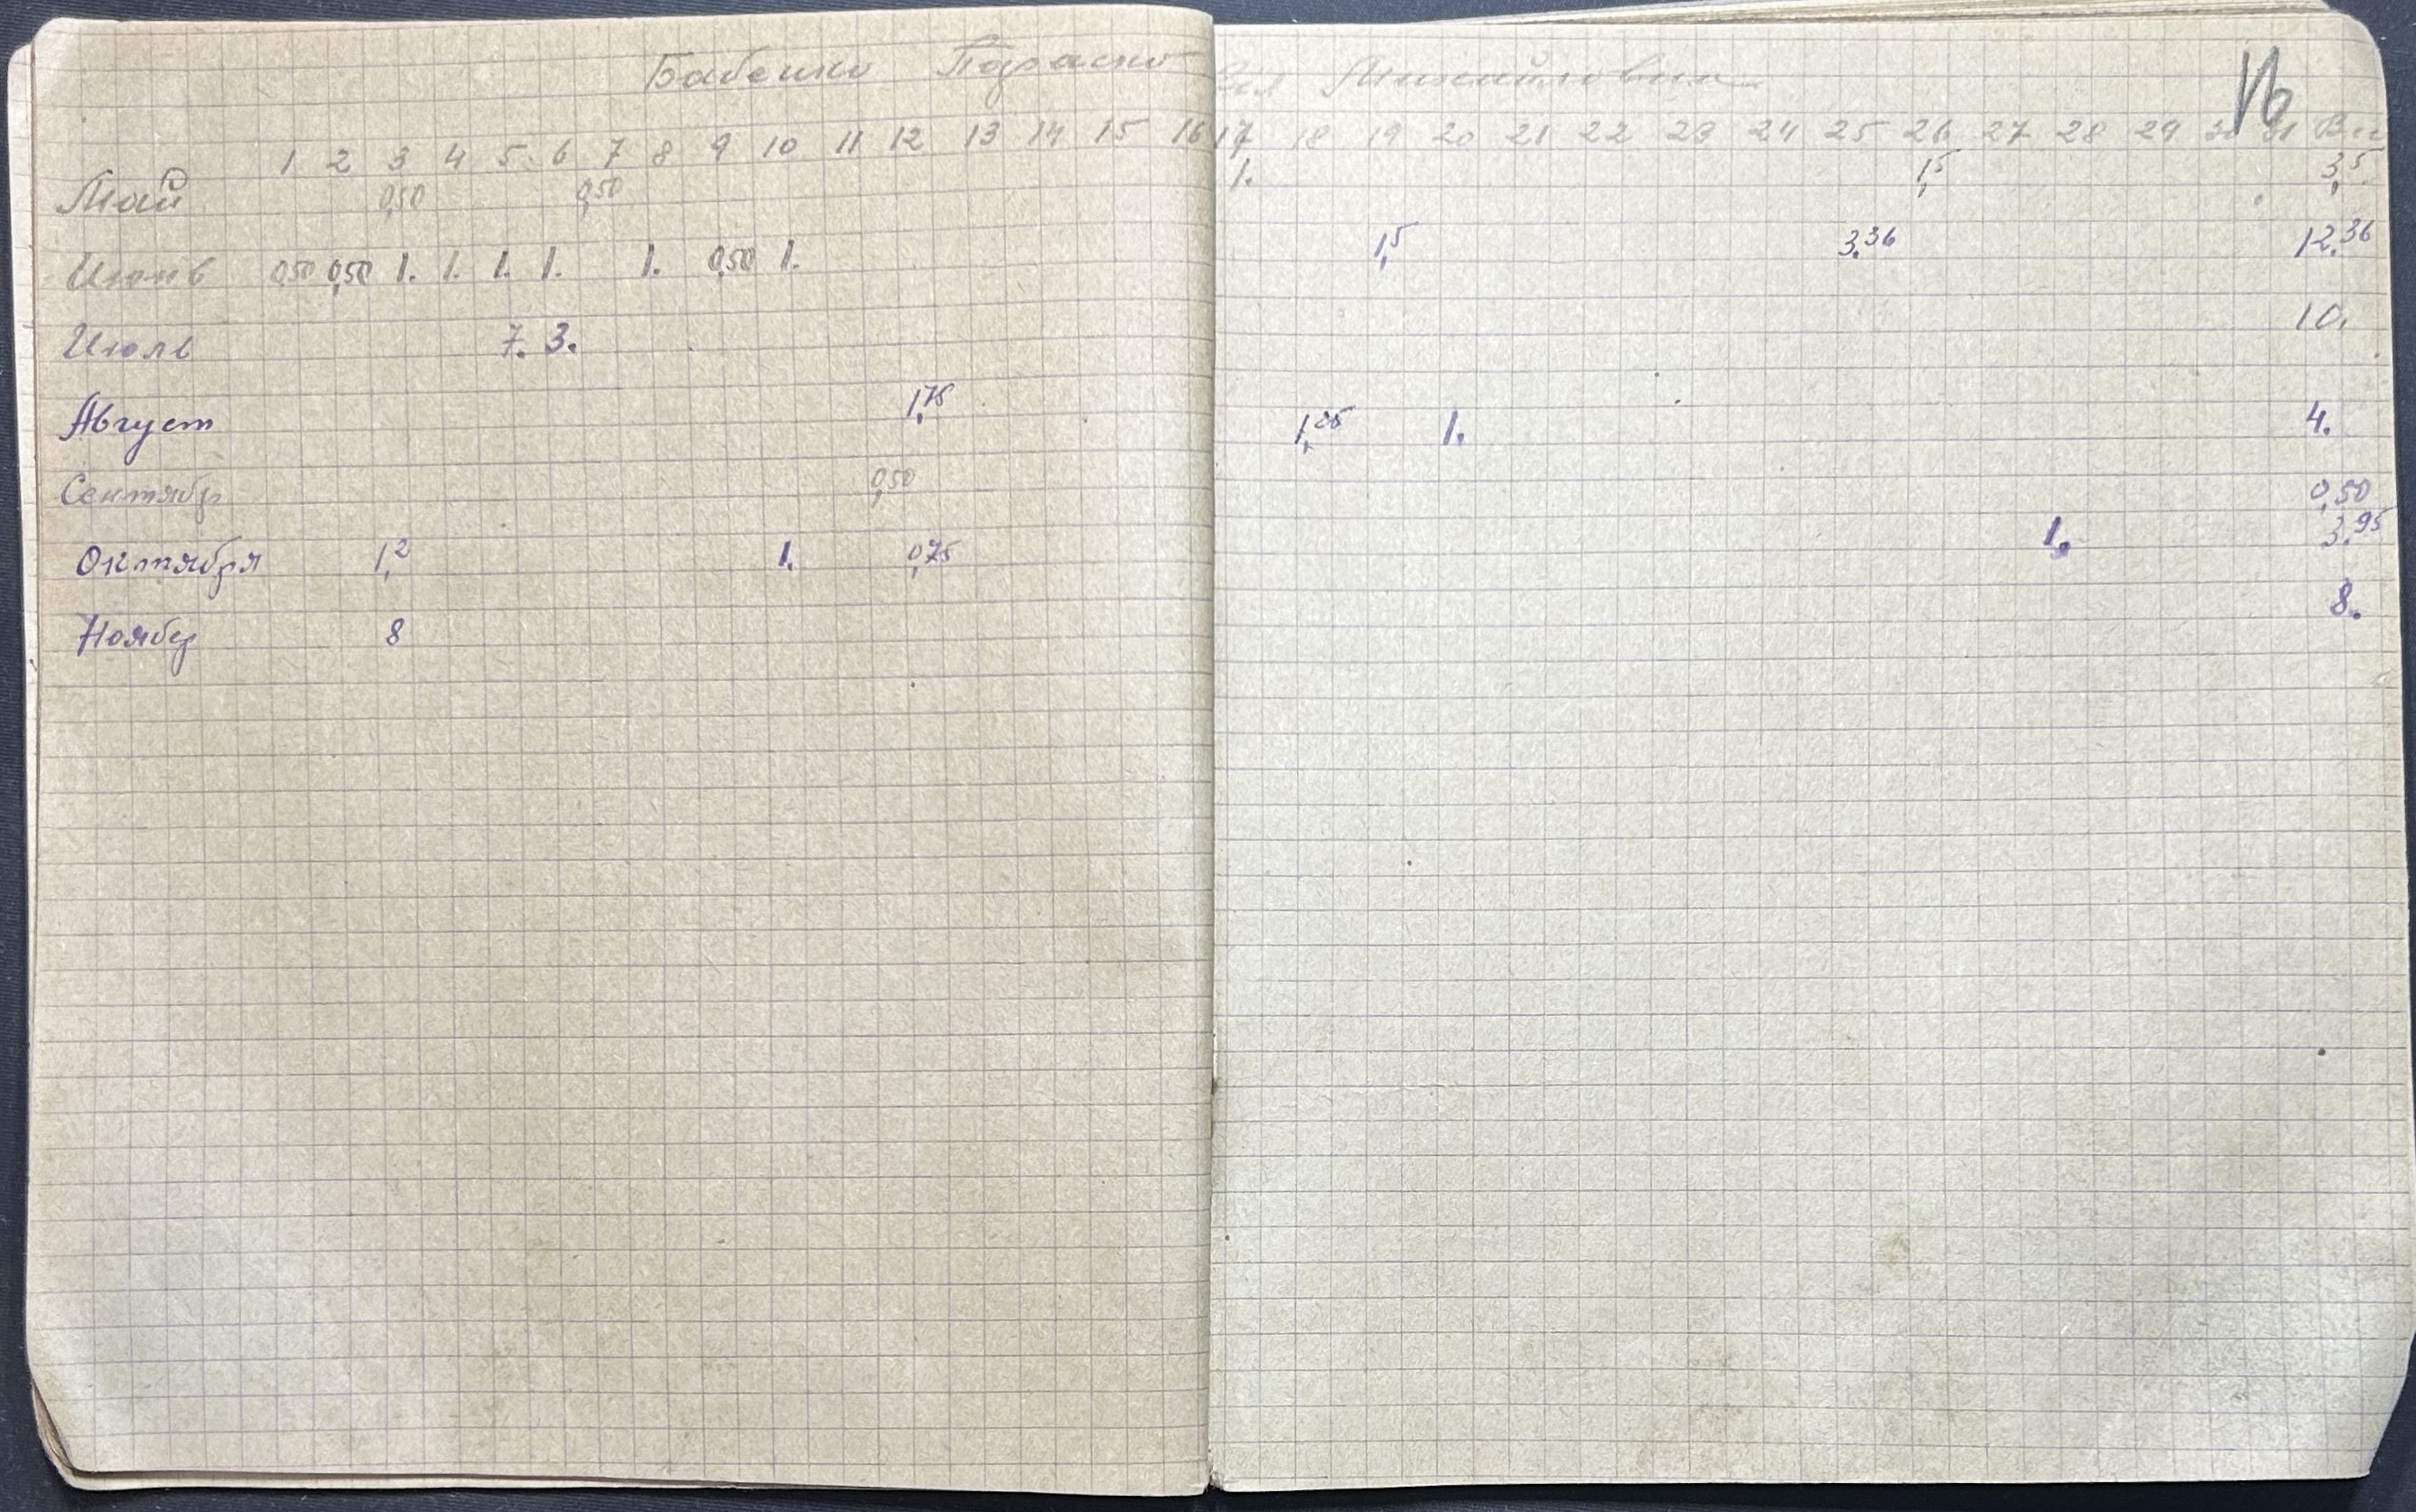 Бабенко Параско вия Михайловна 16
1 2 3 4 5 6 7 8 9 10 11 12 13 14 15 16 17 18 19 20 21 22 23 24 25 26 27 28 29 30 31
Май 0,50 0,50 1. 1,5 3,5
Июнь 0,50 0,50 1. 1. 1. 1. 1. 0,50 1. 1,5 3,36 12,36
Июль 7. 3. 10.
Август 1,75 1,25 1. 4.
Сентябр 0,50 0,50
Октября 1,2 1. 0,75 1. 3,95
Ноябр 8 8.